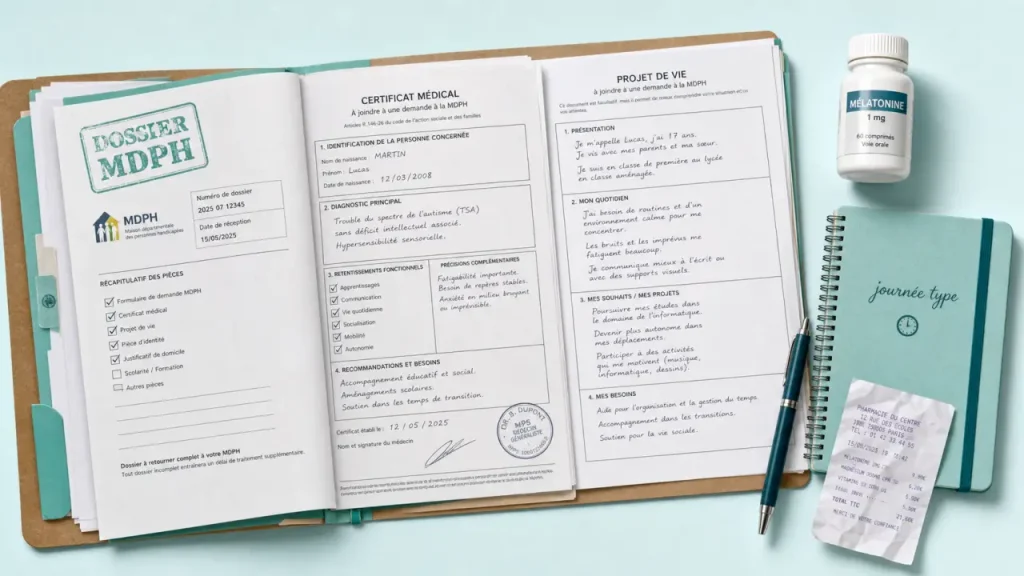 DOSSIER
MDPH
MDPH
Maison départementale
des personnes handicapées
Numéro de dossier
2025 07 12345
Date de réception
15/05/2025
RÉCAPITULATIF DES PIÈCES
Formulaire de demande MDPH
Certificat médical
Projet de vie
Pièce d'identité
Justificatif de domicile
Scolarité / Formation
Autres pièces
Dossier à retourner complet à votre MDPH
Tout dossier incomplet entraînera un délai de traitement supplémentaire.
CERTIFICAT MÉDICAL
À joindre à une demande à la MDPH
du code de l'action sociale et des familles
1. IDENTIFICATION DE LA PERSONNE CONCERNÉE
Nom de naissance : MARTIN
Prénom : Lucas
Date de naissance : 12/03/2008
2. DIAGNOSTIC PRINCIPAL
Trouble du spectre de l'autisme (TSA)
sans déficit intellectuel associé.
Hypersensibilité sensorielle.
3. RETENTISSEMENTS FONCTIONNELS
Apprentissages
Communication
Vie quotidienne
Socialisation
Mobilité
Autonomie
PRÉCISIONS COMPLÉMENTAIRES
Fatigabilité importante.
Besoin de repères stables.
Anxiété en milieu bruyant
ou imprévisible.
4. RECOMMANDATIONS ET BESOINS
Accompagnement éducatif et social.
Aménagements scolaires.
Soutien dans les temps de transition.
Certificat établi le : 12 / 05 / 2025
Nom et signature du médecin
DR. B. DUPONT
MPS
MÉDECIN
GÉNÉRALISTE
PROJET DE VIE
à joindre à une demande à la MDPH
Ce document est facultatif, mais il permet de mieux comprendre votre situation et
vos attentes.
1. PRÉSENTATION
Je m'appelle Lucas, j'ai 17 ans.
Je vis avec mes parents et ma sœur.
Je suis en classe de première au lycée
en classe aménagée.
2. MON QUOTIDIEN
J'ai besoin de routines et d'un
environnement calme pour me
concentrer.
Les bruits et les imprévus me
fatiguent beaucoup.
Je communique mieux à l'écrit ou
avec des supports visuels.
3. MES SOUHAITS / MES PROJETS
Poursuivre mes études dans
le domaine de l'informatique.
Devenir plus autonome dans
mes déplacements.
Participer à des activités
qui me motivent (musique,
informatique, dessins).
4. MES BESOINS
Aide pour l'organisation et la gestion du temps.
Accompagnement dans les transitions.
Soutien pour la vie sociale.
MÉLATONINE
1 mg
60 comprimés
Voie orale
journée type
PHARMACIE DU CENTRE
12 RUE DES ÉCOLES
PARIS
TEL : 01 42 33 44 55
MELATONINE
TOTAL TTC
MERCI DE VOTRE CONFIANCE